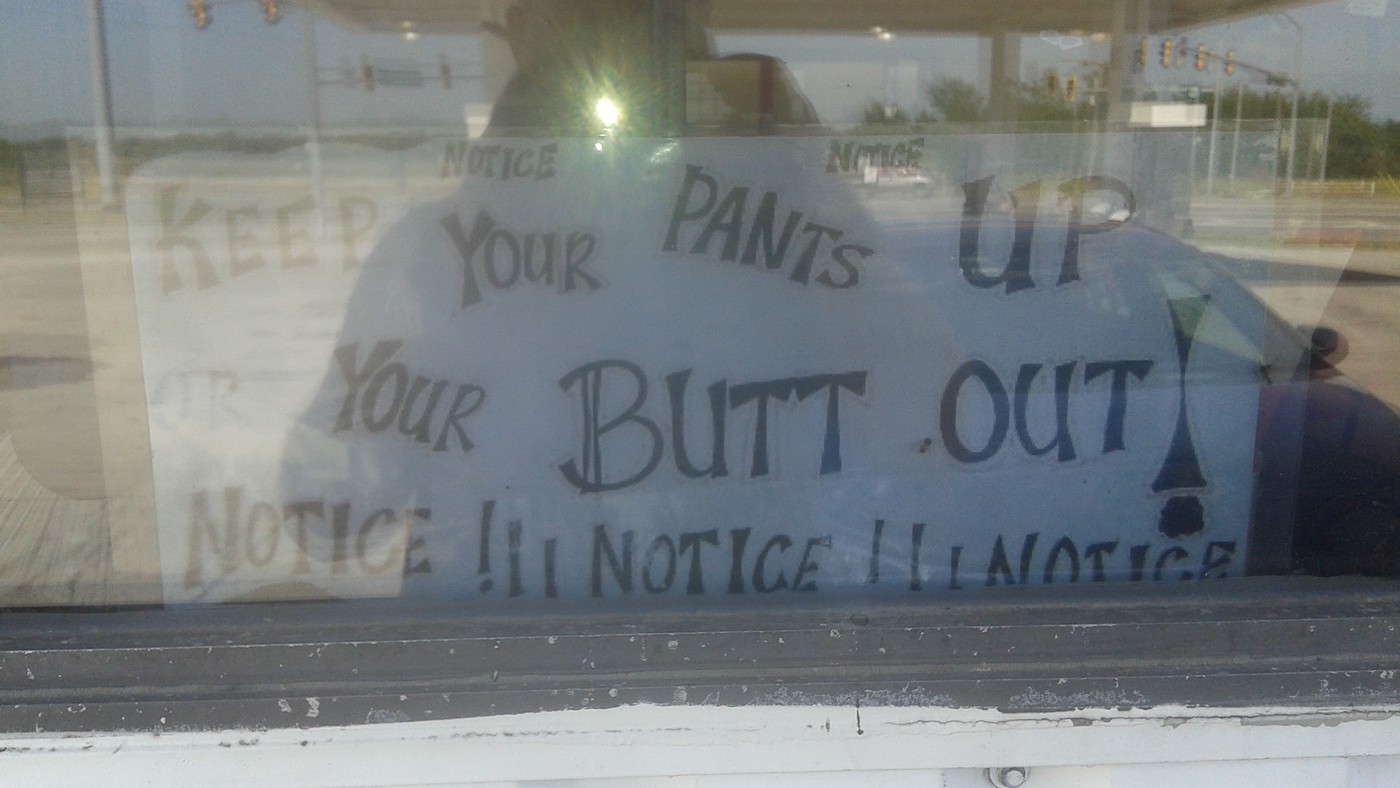 NOTICE NOTICE
KEEP YOUR PANTS UP
OR YOUR BUTT OUT!
NOTICE !!! NOTICE !!! NOTICE